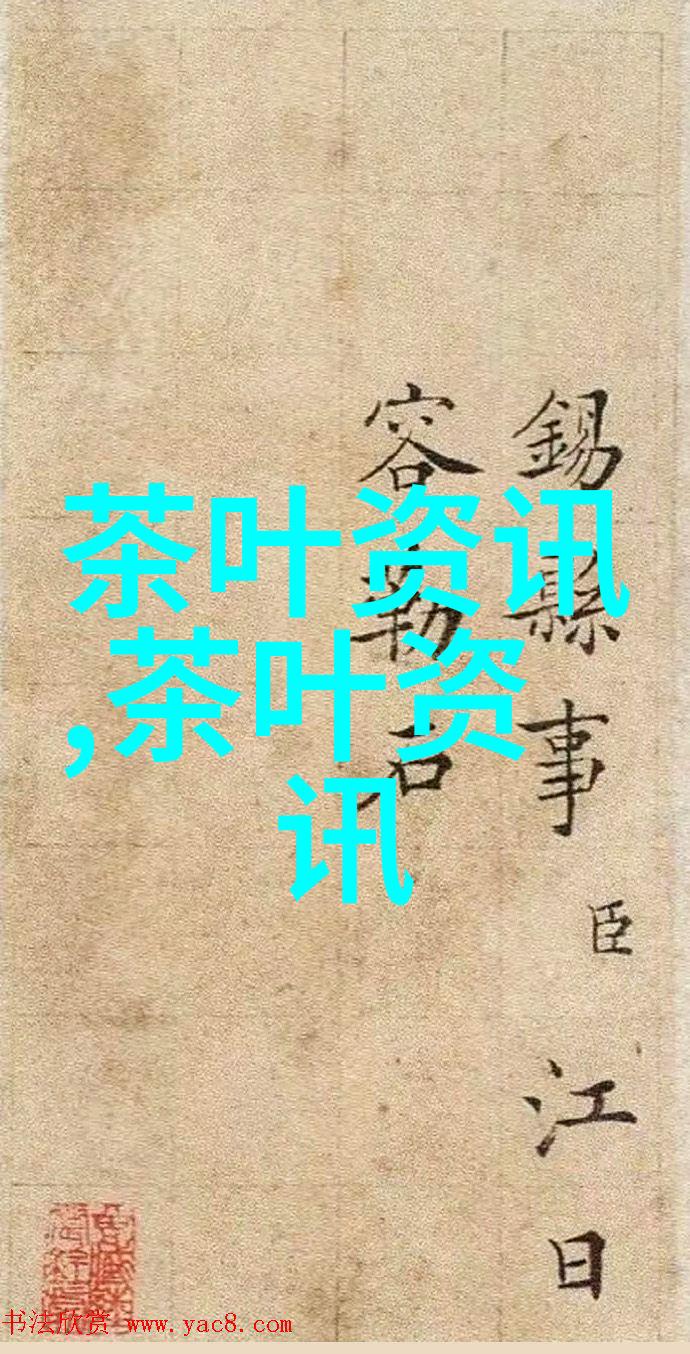 錫縣事臣江日
容勒石
茶叶资讯
,茶叶资
讯
书法欣赏 www.yac8.com